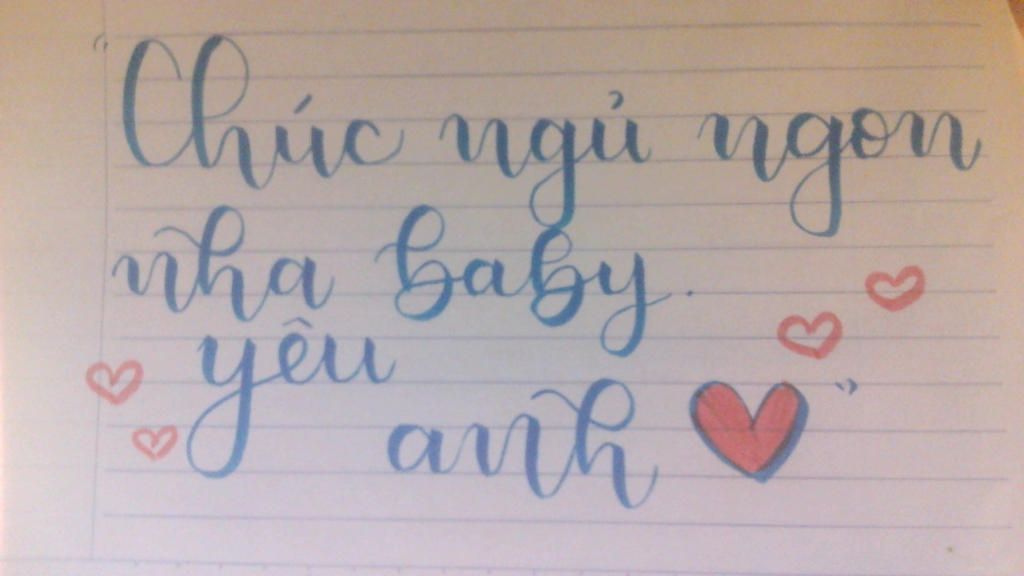 "Chúc ngủ ngon
nha baby.
yêu
anh "